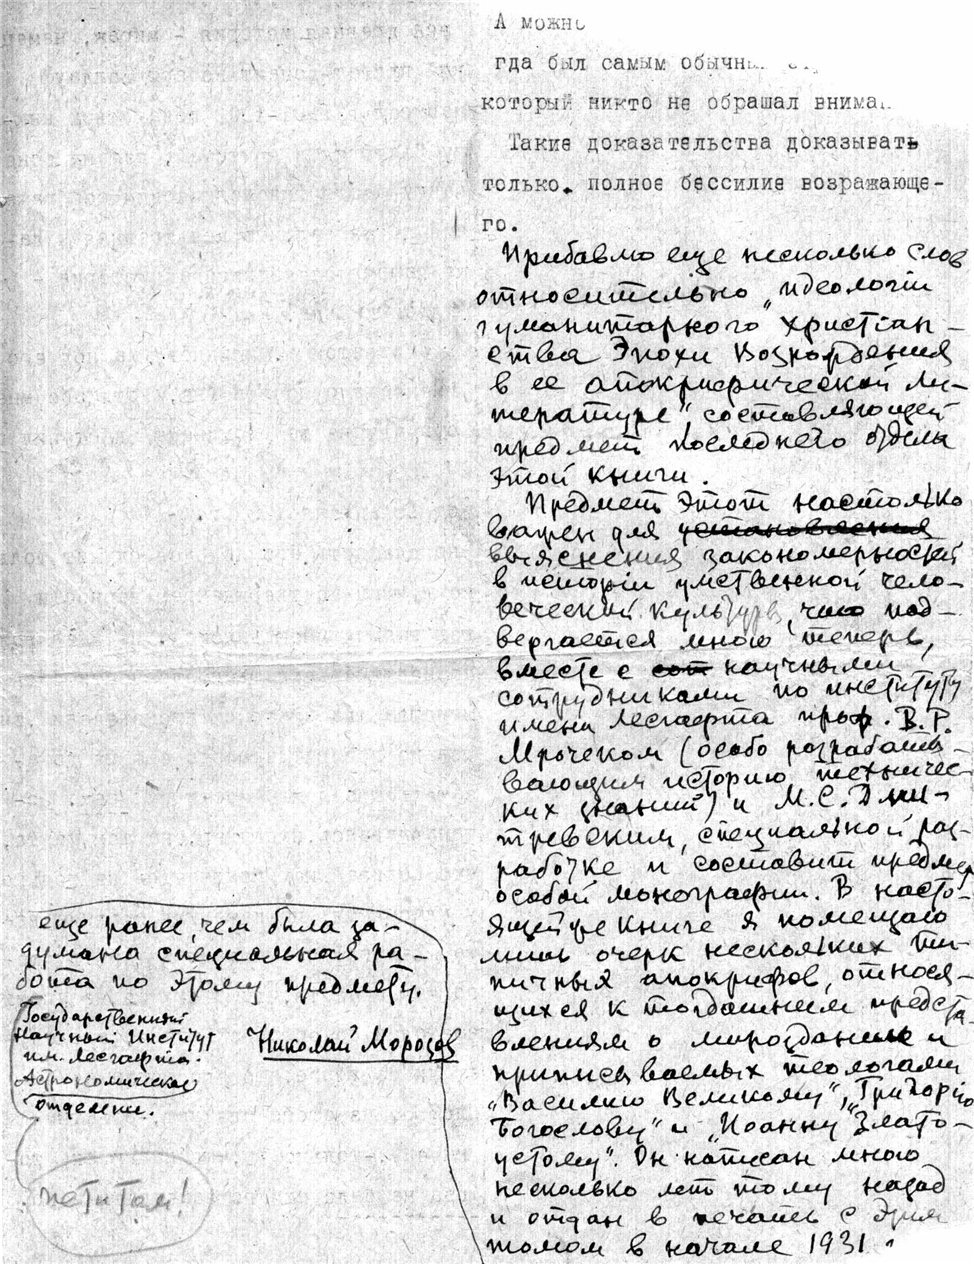 А можно
гда был самым обычн
который никто не обращал внима
Такие доказательства доказывать
только. полное бессилие возражающе-
го.
Прибавлю еще несколько слов
относительно „идеологіи
гуманитарного христіан-
ства Эпохи Возрождения
в ее апокрифической ли-
тературе" составляющей
предмет последнего отдела
этой книги.
Предмет этот настолько
важен для установления
выяснения закономерностей
в исторіи умственной чело-
веческой культуры, что под-
вергается мною теперь,
вместе с сот научными
сотрудниками по институту
имени Лесгафта проф. В.Р.
Мрочеком (особо разрабаты-
вающим историю техничес-
ких знаний) и М.С. Дми-
тревским, специальной раз-
работке и составит предмет
особой монографии. В насто-
ящей же книге я помещаю
лишь очерк нескольких ти-
пичных апокрифов, относя-
щихся к тогдашним предста-
влениям о мироздании и
приписываемых теологами
„Василию Великому", „Григорию
Богослову" и „Иоанну Злато-
устому". Он написан мною
несколько лет тому назад
и отдан в печать с этим
томом в начале 1931.
еще ранее, чем была за-
думана специальная ра-
бота по этому предмету.
Государственный
Научный Институт
им. Лесгафта.
Астрономическое
отделени.
Николай Морозов
петитом!